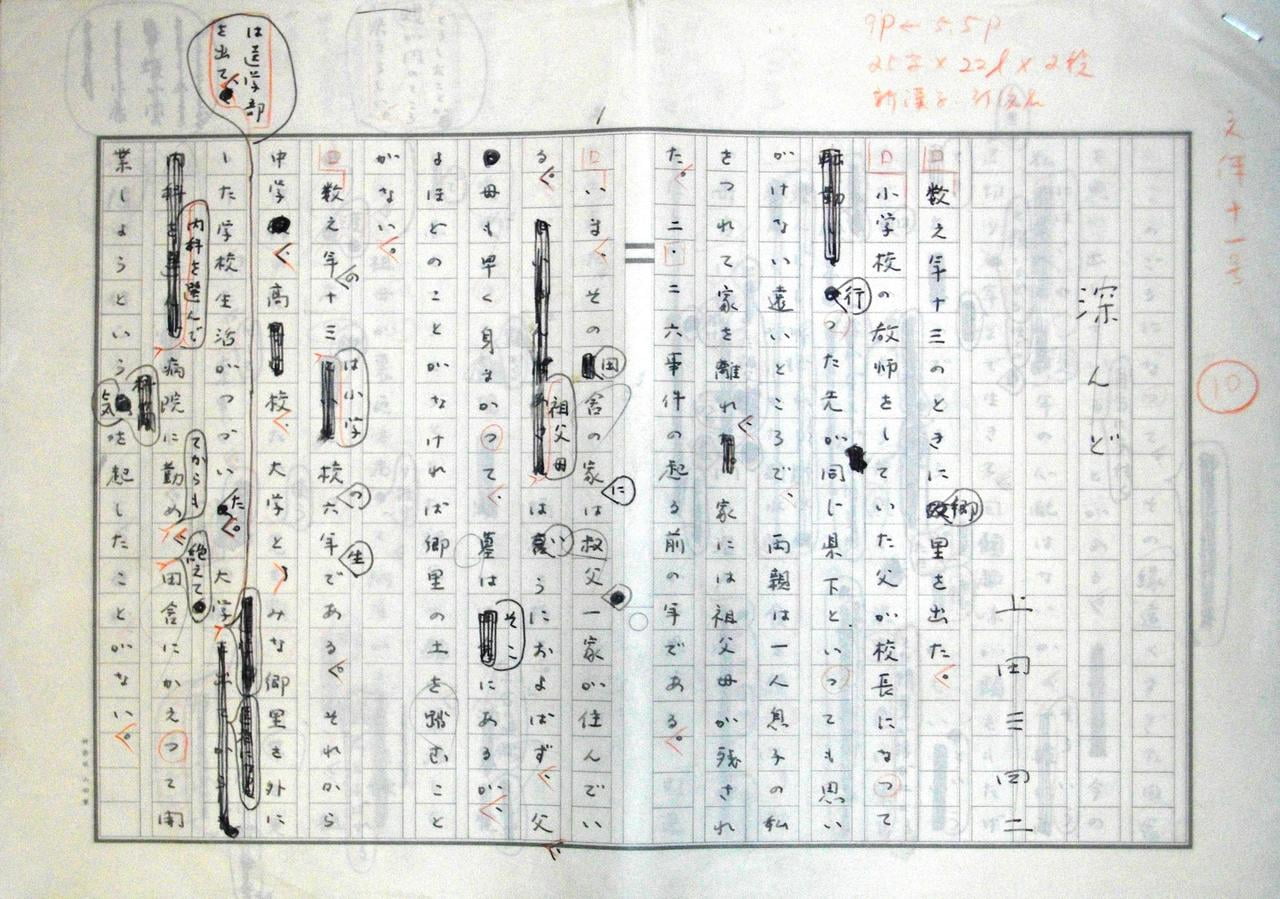 9P ← 5.5P
25字×22l×2段
新漢字 新かな
文体十一号
10
深んど
上田三四二
数え年十三のときに郷里を出た。
小学校の教師をしていた父が校長になつて
行つた先が同じ県下といつても思い
がけない遠いところで、両親は一人息子の私
をつれて家を離れ、家には祖父母が残され
た。二・二六事件の起る前の年である。
いま、その田舎の家には叔父一家が住んでい
る。祖父母は言うにおよばず、父
母も早く身まかつて、墓はそこにあるが、
よほどのことがなければ郷里の土を踏むこと
がない。
数え年の十三は小学校の六年生である。それから
中学、高校、大学とみな郷里を外に
した学校生活がつづいた。大学は医学部を出て、
内科を選んで病院に勤めてからも、絶えて田舎にかえつて開
業しようという気を起したことがない。